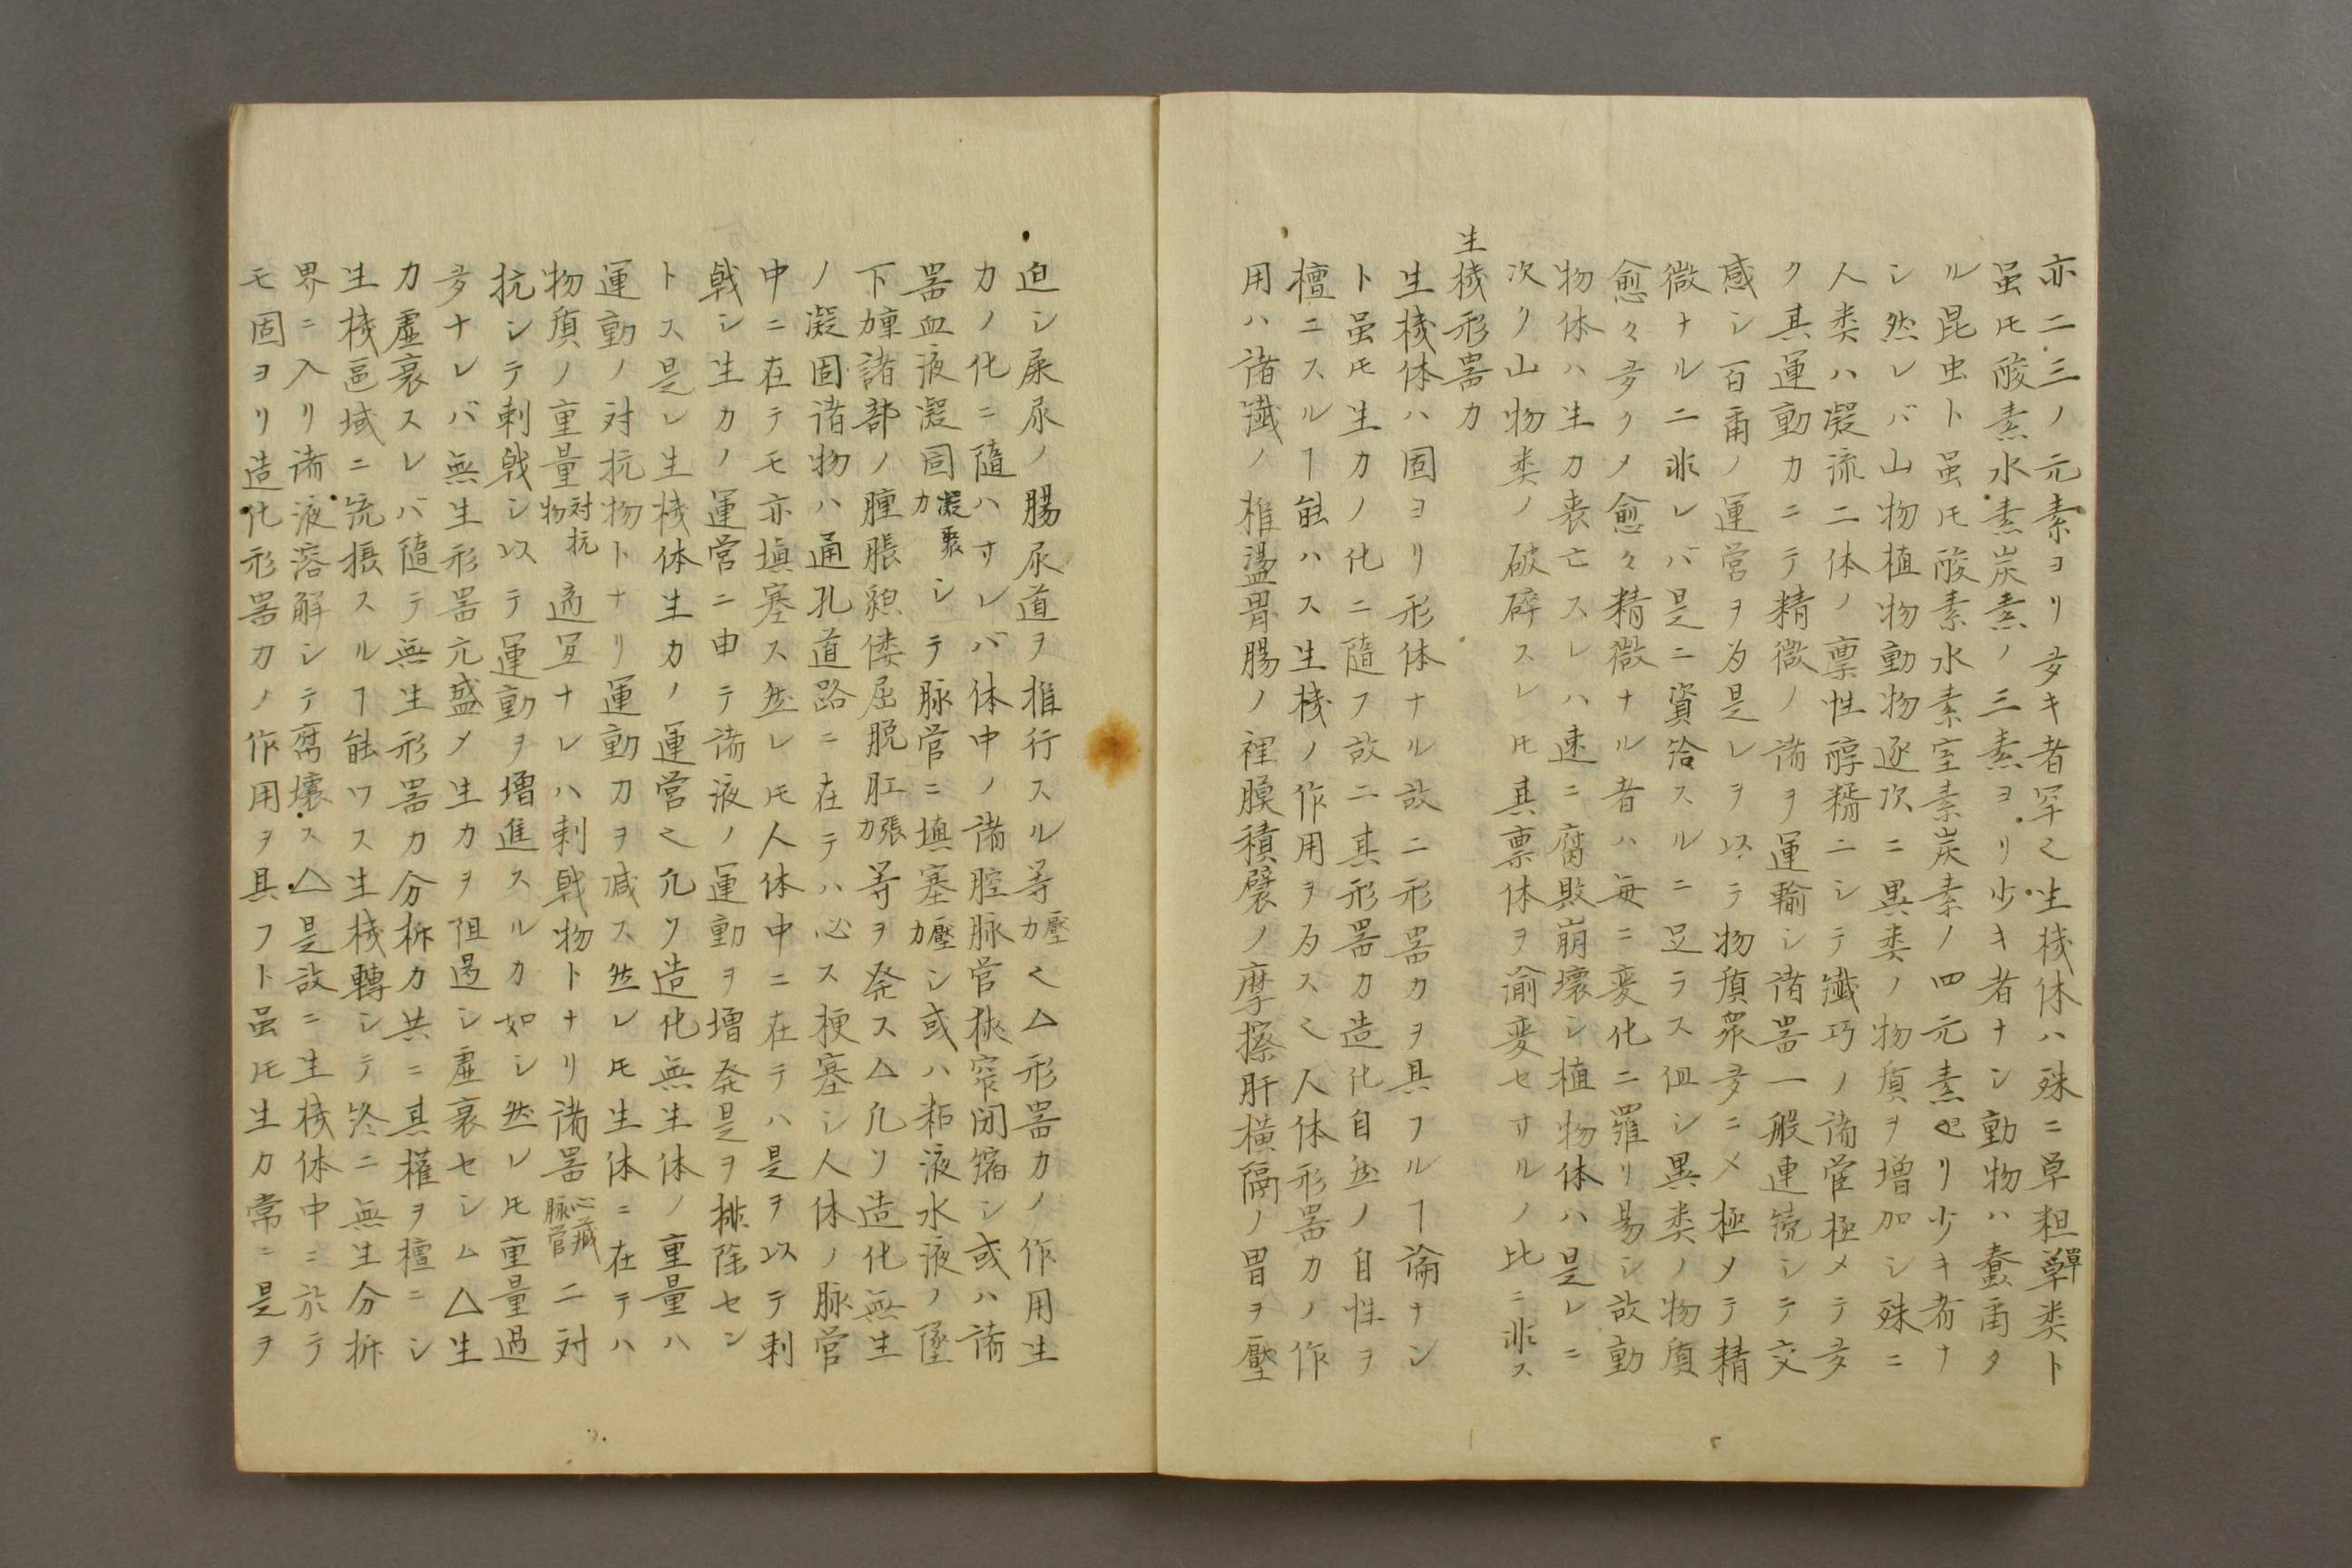 亦二三ノ元素ヨリ多キ者罕〻生機体ハ殊ニ草粗蕈類ト
虽𪜈酸素水素炭素ノ三素ヨリ少キ者ナシ動物ハ蠢爾タ
ル昆虫ト虽𪜈酸素水素窒素炭素ノ四元素ヨリ少キ者ナ
シ然レバ山物植物動物逐次ニ異类ノ物質ヲ増加シ殊ニ
人类ハ凝流二体ノ禀性醇糈ニシテ纎巧ノ諸管極メテ多
ク其運動力ニテ精微ノ諸ヲ運輸シ諸器一般連続シテ交
感シ百爾ノ運営ヲ為是レヲ以テ物質衆多ニメ極メテ精
微ナルニ非レバ是ニ資給スルニ足ラス但シ異类ノ物質
愈々多クメ愈々精微ナル者ハ毎ニ変化ニ罹リ易シ故動
物体ハ生力丧亡スレハ速ニ腐敗崩壊シ植物体ハ是レニ
次ク山物类ノ破碎スレ𪜈其禀体ヲ渝変セサルノ比ニ非ス
生機形器力
生機体ハ固ヨリ形体ナル故ニ形器力ヲ具フルヿ論ナシ
ト虽𪜈生力ノ化ニ隨フ故ニ其形器力造化自然ノ自性ヲ
檀ニスルヿ能ハス生機ノ作用ヲ為ス〻人体形器力ノ作
用ハ諸纎ノ椎盪胃腸ノ裡膜積襞ノ摩擦肝横隔ノ胃ヲ壓
迫シ屎尿ノ腸尿道ヲ推行スル等壓力〻△形器力ノ作用生
力ノ化ニ隨ハサレバ体中ノ諸腔脉管狹窄閉縮シ或ハ諸
器血液凝固凝聚力シテ脉管ニ填塞壓力シ或ハ粘液水液ノ墜
下㔟諸部ノ腫脹䫉倭屈脱肛張力等ヲ発ス△凡ソ造化無生
ノ凝固諸物ハ通孔道路ニ在テハ必ス梗塞シ人体ノ脉管
中ニ在テモ亦填塞ス然レ𪜈人体中ニ在テハ是ヲ以テ刺
戟シ生力ノ運営ニ由テ諸液ノ運動ヲ増発是ヲ排除セン
トス是レ生機体生力ノ運営〻凡ソ造化無生体ノ重量ハ
運動ノ対抗物トナリ運動力ヲ减ス然レ𪜈生体ニ在テハ
物質ノ重量対抗物適宜ナレハ刺戟物トナリ諸器心蔵脉管ニ対
抗シテ刺戟シ以テ運動ヲ増進スルカ如シ然レ𪜈重量過
多ナレバ無生形器亢盛メ生力ヲ阻遏シ虚衰セシム△生
力虚衰スレバ隨テ無生形器力分拆力共ニ其権ヲ檀ニシ
生機區域ニ㐬摂スルヿ能ワス生機轉シテ終ニ無生分拆
界ニ入リ諸液溶解シテ腐壊ス△是故ニ生機体中ニ於テ
モ固ヨリ造化形器力ノ作用ヲ具フト虽𪜈生力常ニ是ヲ